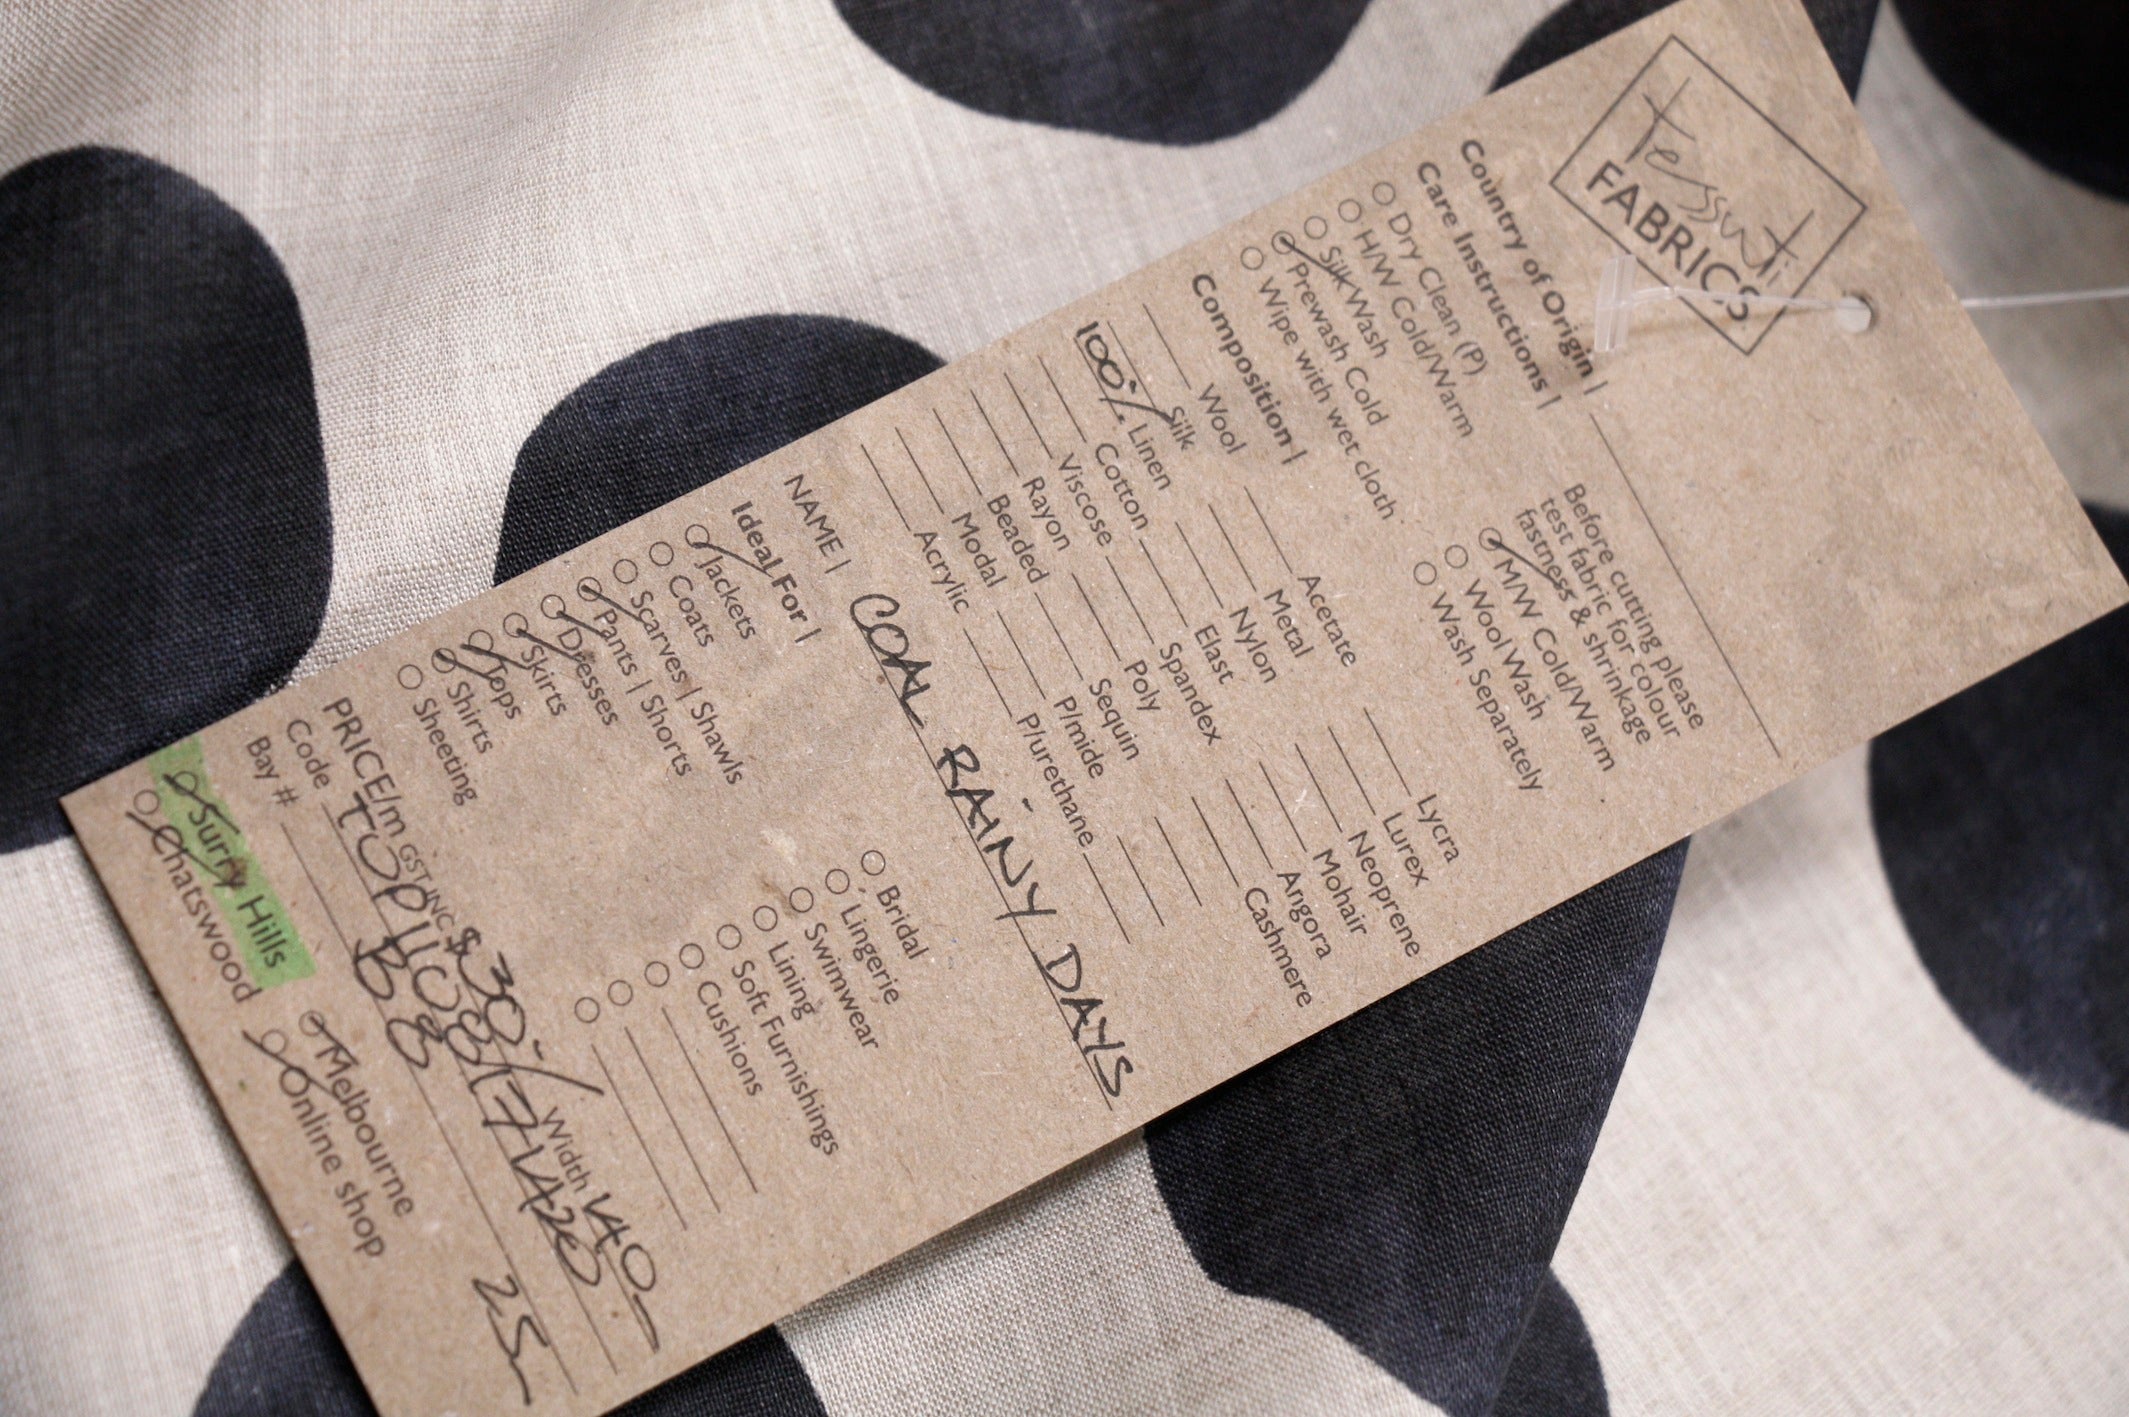 tessuti
FABRICS
Country of Origin |
Care Instructions |
Dry Clean (P)
H/W Cold/Warm
Silk Wash
Prewash Cold
Wipe with wet cloth
Before cutting please
test fabric for colour
fastness & shrinkage
M/W Cold/Warm
Wool Wash
Wash Separately
Composition |
Wool Acetate Lycra
Silk Metal Lurex
100% Linen Nylon Neoprene
Cotton Elast Mohair
Viscose Spandex Angora
Rayon Poly Cashmere
Beaded Sequin
Modal P/mide
Acrylic P/urethane
NAME | COAL RAINY DAYS
Ideal For |
Jackets Bridal
Coats Lingerie
Scarves | Shawls Swimwear
Pants | Shorts Lining
Dresses Soft Furnishings
Skirts Cushions
Tops
Shirts
Sheeting
PRICE/m GST INC $30 Width 140
Code
Bay # B8 25
Surry Hills Melbourne
Chatswood Online shop